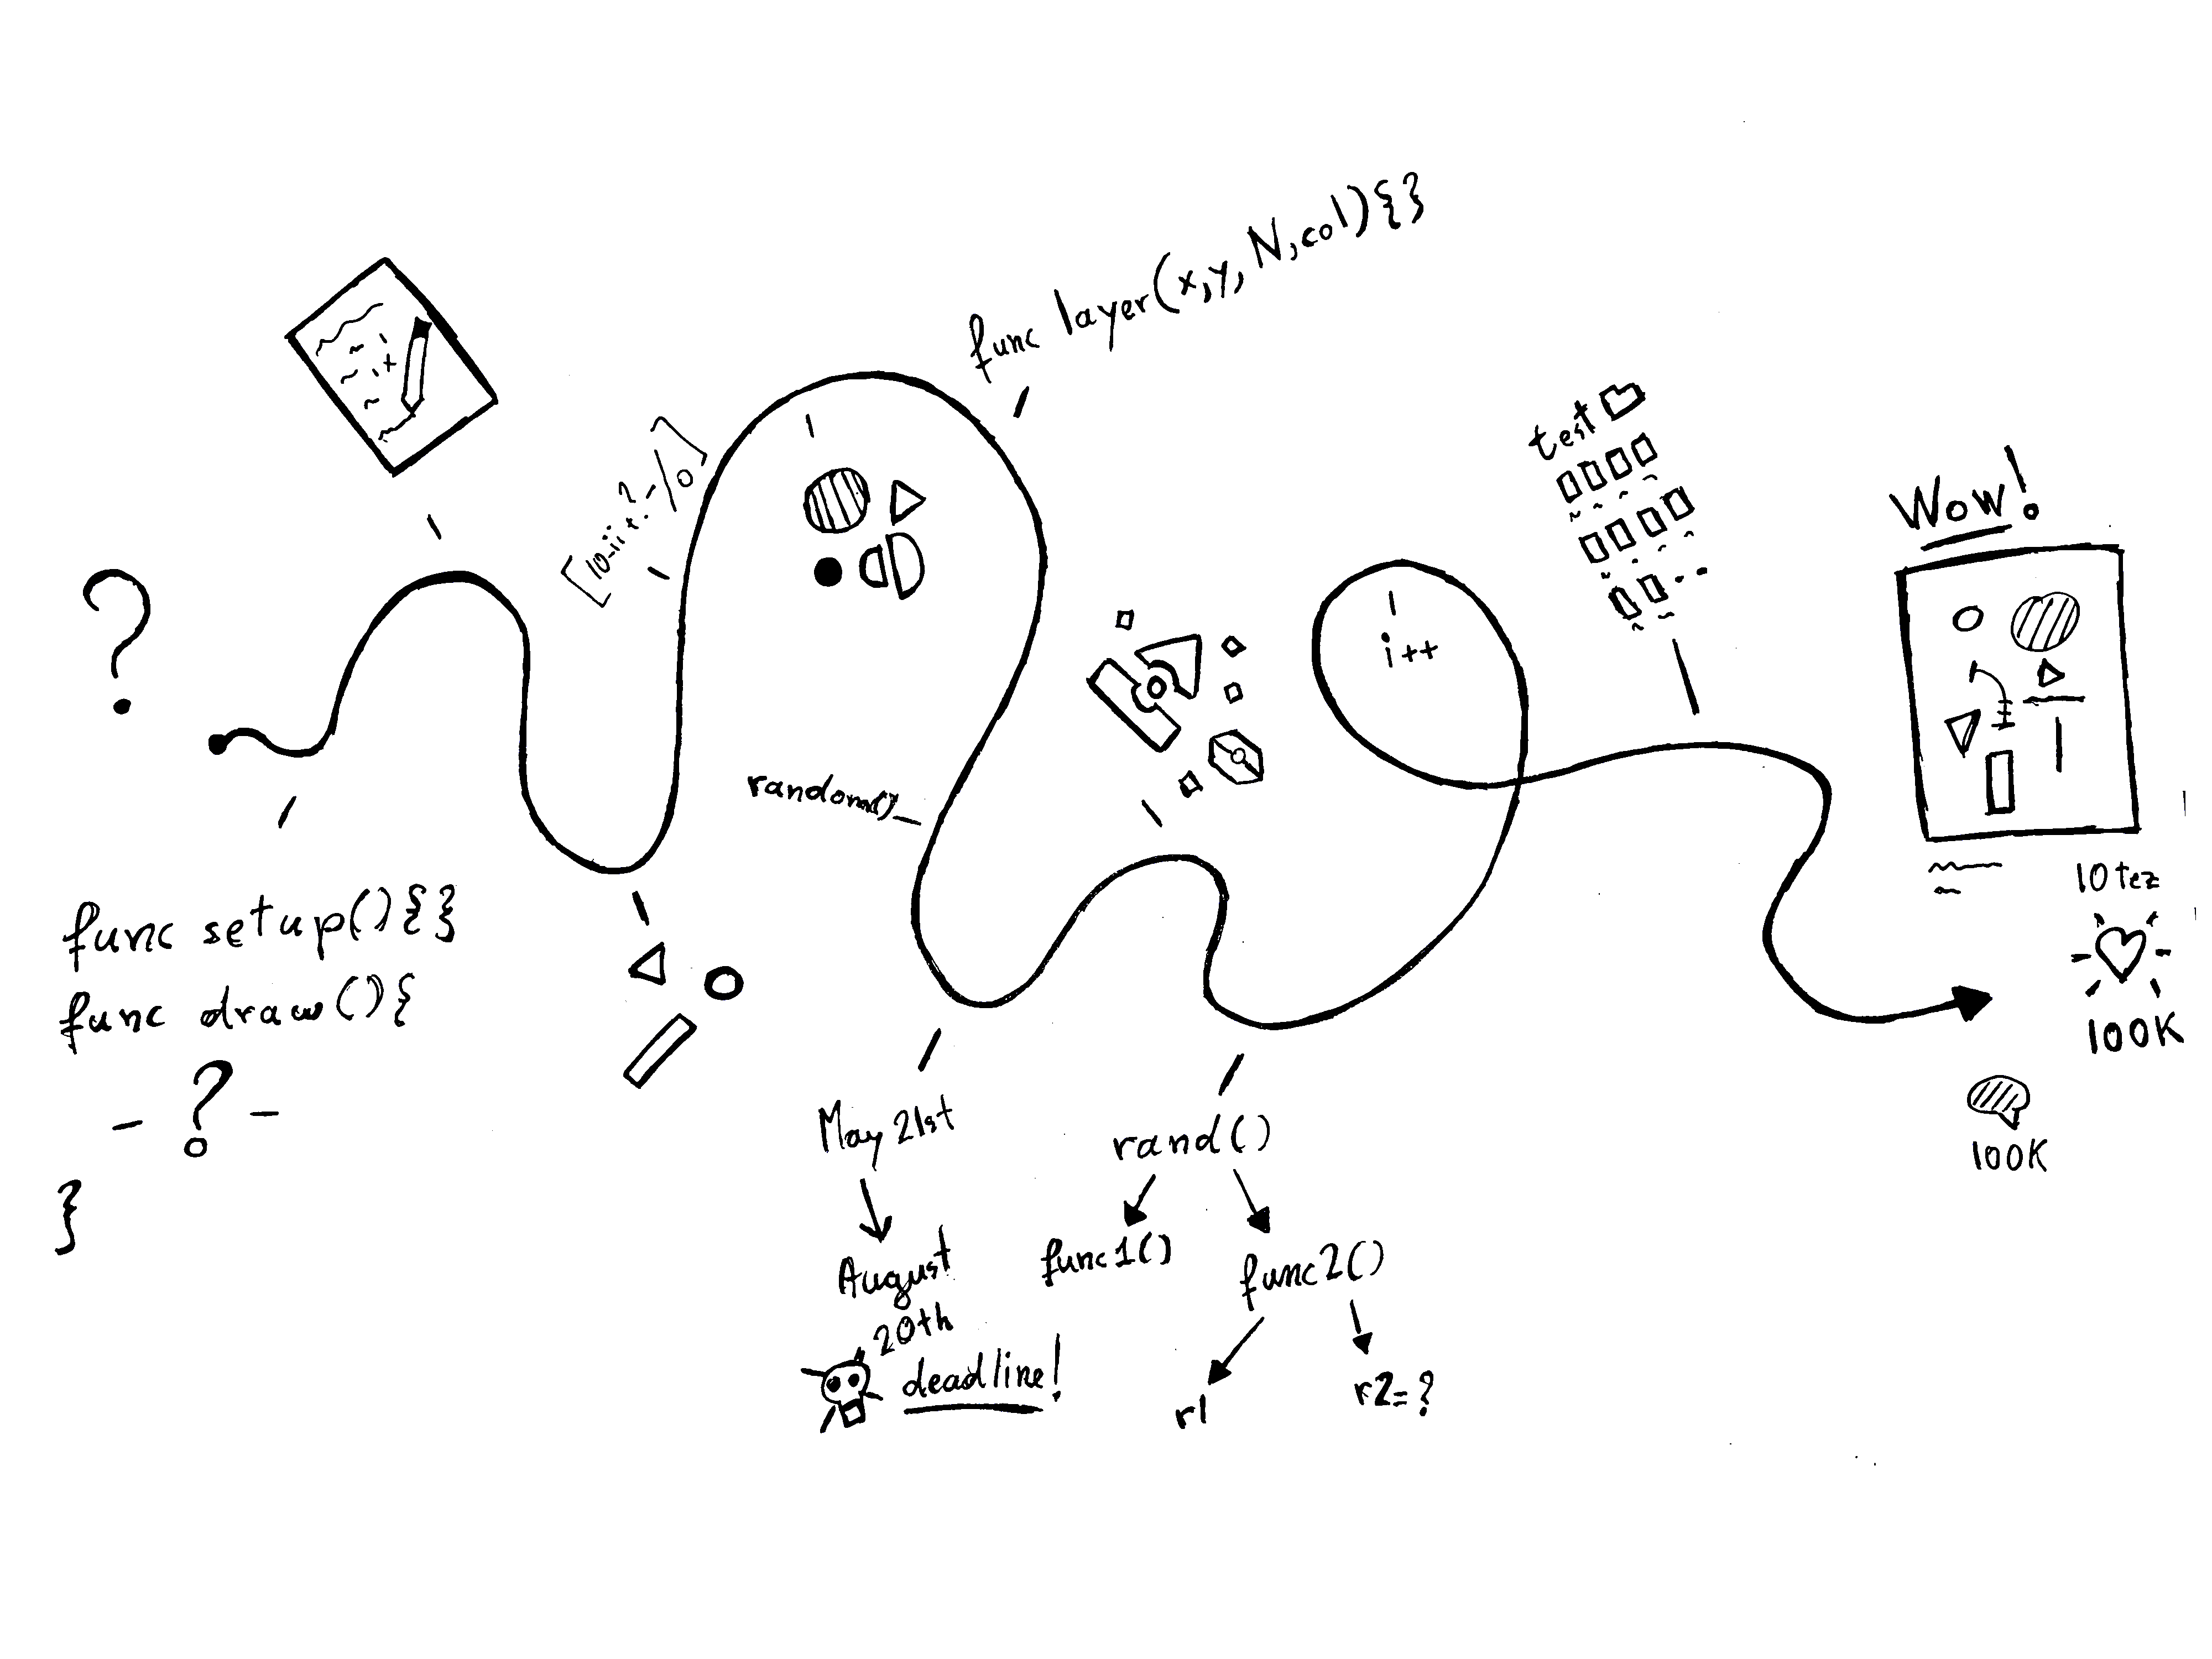 ?
func setup(){}
func draw(){
- ? -
}
func layer(x,y,N,col){}
random()
May 21st
August
20th
deadline!
rand()
func1()
func2()
r1
r2=?
i++
test
Wow!
10 tez
100K
100K